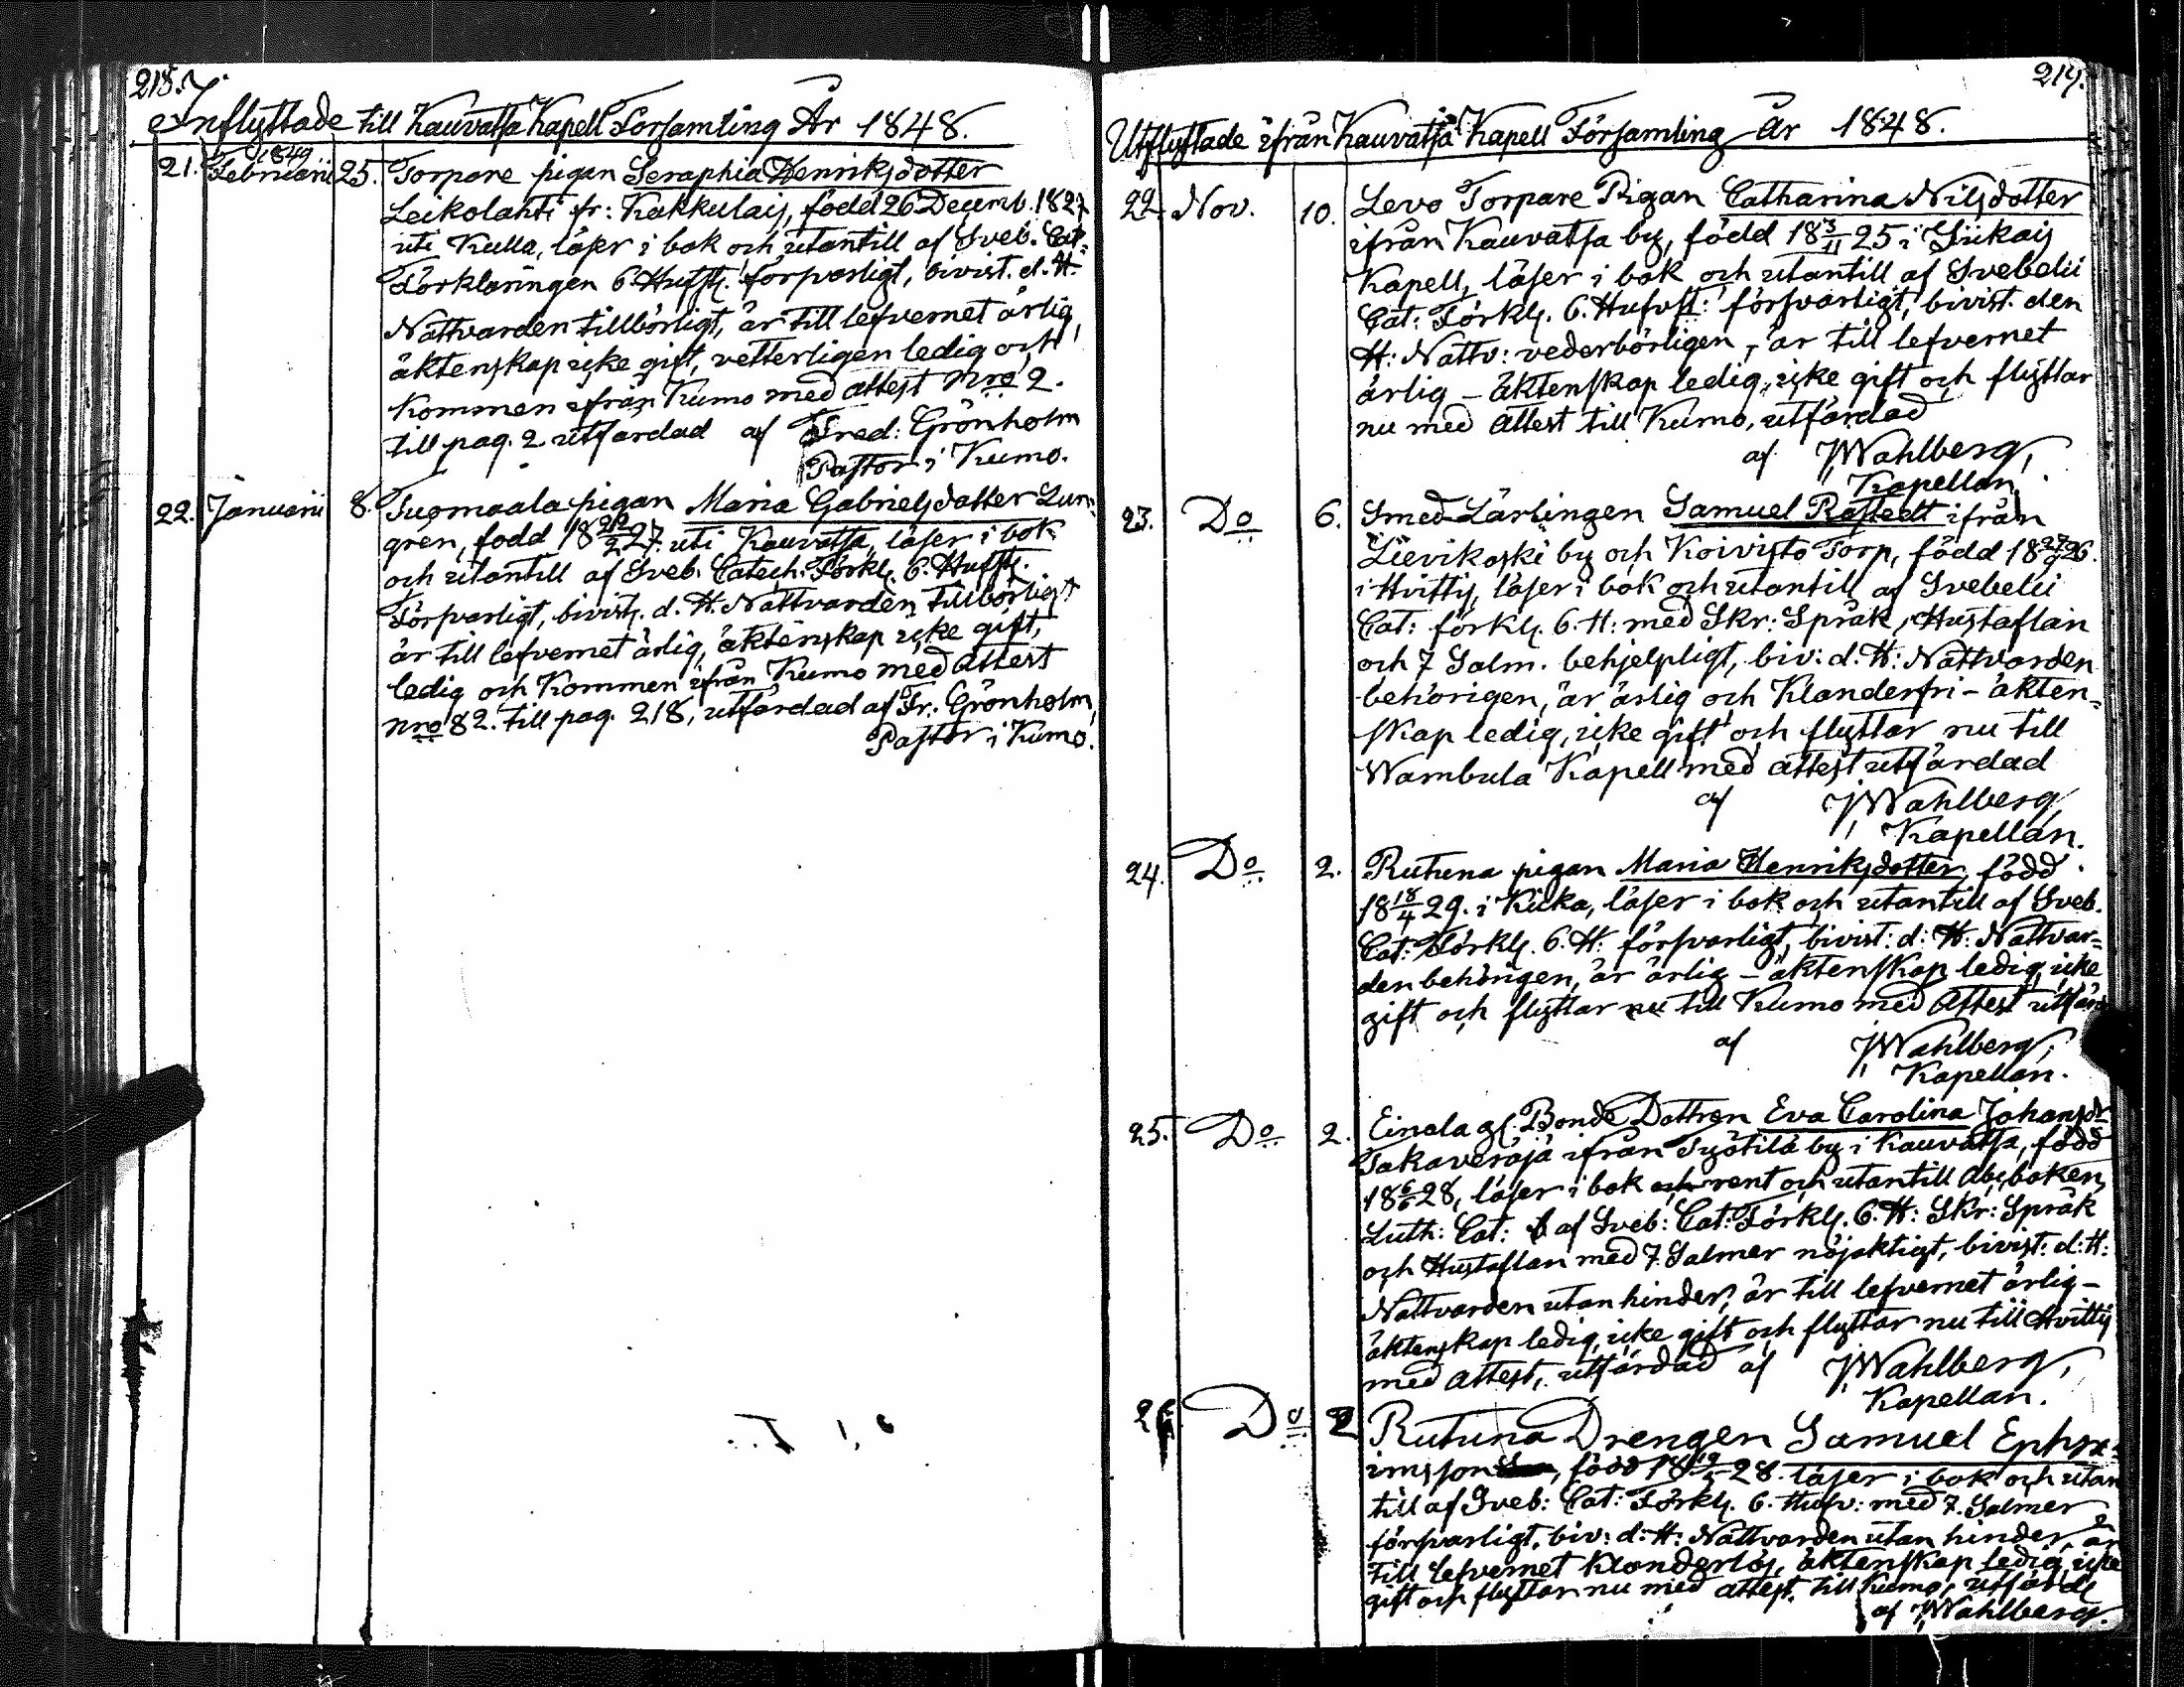 218.
Inflyttade till Kauvatsa Kapell Församling År 1848.
21. Februarii 1849 25. Torpare pigan Seraphia Henriksdotter
Leikolahti fr: Kakkulais, född 26 Decemb. 1827
uti Kulla, läser i bok och utantill af Sveb. Cat.
Förklaringen 6 Hufst. försvarligt, bivist. d. H.
Nattvarden tillbörligt, är till lefvernet ärlig,
äktenskap icke gift, vetterligen ledig och
Kommen ifrån Kumo med attest Nro 2.
till pag. 2 utfärdad af Fred: Grönholm
Pastor i Kumo.
22. Januarii 8. Tuomaala pigan Maria Gabrielsdotter Lun-
gren, född 18 2/2 27. uti Kauvatsa, läser i bok
och utantill af Sveb. Catech. Förkl. 6. Hufst.
Försvarligt, bivist. d. H. Nattvarden tillbörligt
är till lefvernet ärlig, äktenskap icke gift,
ledig och Kommen ifrån Kumo med Attest
nro 82. till pag. 218, utfärdad af Fr: Grönholm,
Pastor i Kumo.
219.
Utflyttade ifrån Kauvatsa Kapell Församling År 1848.
22. Nov. 10. Levo Torpare Pigan Catharina Nilsdotter
ifrån Kauvatsa by, född 18 3/11 25 i Siikais
Kapell, läser i bok och utantill af Svebelii
Cat: Förkl. 6. Hufvst: försvarligt, bivist. den
H: Nattv: vederbörligen, är till lefvernet
ärlig - äktenskap ledig, icke gift och flyttar
nu med Attest till Kumo, utfärdad
af JWahlberg,
Kapellan.
23. Do 6. Smed Lärlingen Samuel Rastedt ifrån
Lievikoski by och Koivisto Torp, född 18 26.
i Hvittis, läser i bok och utantill af Svebelii
Cat: förkl. 6. H: med Skr: Språk, Hustaflan
och 7 Salm. behjelpligt, biv: d: H: Nattvarden
behörigen, är ärlig och Klanderfri - äkten=
skap ledig, icke gift och flyttar nu till
Wambula Kapell med attest utfärdad
af JWahlberg,
Kapellan.
24. Do 2. Rutuna pigan Maria Henriksdotter, född
18 18/4 29. i Kiika, läser i bok och utantill af Sveb.
Cat: Förkl. 6. H: försvarligt, bivist: d: H: Nattvar=
den behörigen, är ärlig - äktenskap ledig, icke
gift och flyttar nu till Kumo med Attest utfärd
af JWahlberg,
Kapellan.
25. Do 2. Einola gl. Bonde Dottren Eva Carolina Johansdr
Takaveräjä ifrån Työtilä by i Kauvatsa, född
18 6/6 28, läser i bok rent och utantill Abcboken,
Luth: Cat: af Sveb: Cat: Förkl. 6. H: Skr: Språk
och Hustaflan med 7. Salmer nöjaktigt, bivist: d: H:
Nattvarden utan hinder, är till lefvernet ärlig -
äktenskap ledig, icke gift och flyttar nu till Hvittis
med attest, utfärdad af JWahlberg,
Kapellan.
26 Do 2 Rutuna Drengen Samuel Ephra-
imsson, född 18 28. läser i bok och utan
till af Sveb: Cat: Förkl. 6. Hufv: med 7. Salmer
försvarligt, biv: d: H: Nattvarden utan hinder, är
till lefvernet Klanderlös, äktenskap ledig, icke
gift och flyttar nu med attest. till Kumo, utfärd
af JWahlberg.